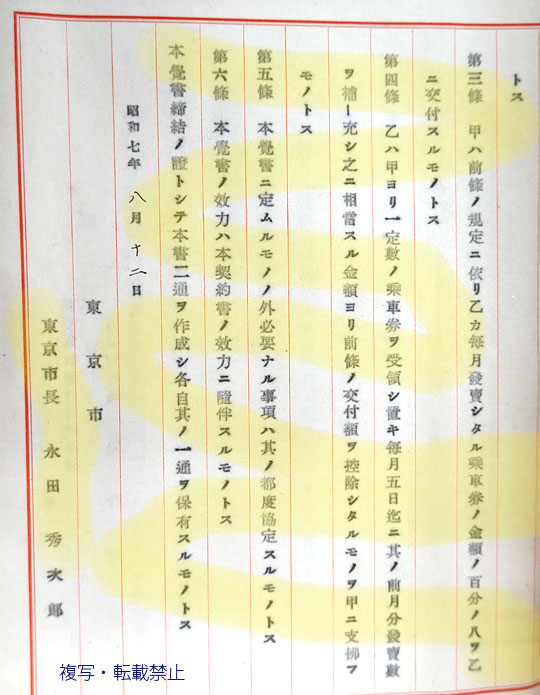 トス
第三條　甲ハ前條ノ規定ニ依リ乙カ每月發賣シタル乘車券ノ金額ノ百分ノ八ヲ乙
ニ交付スルモノトス
第四條　乙ハ甲ヨリ一定數ノ乘車券ヲ受領シ置キ每月五日迄ニ其ノ前月分發賣數
ヲ補ー充シ之ニ相當スル金額ヨリ前條ノ交付額ヲ控除シタルモノヲ甲ニ支拂フ
モノトス
第五條　本覺書ニ定ムルモノノ外必要ナル事項ハ其ノ都度協定スルモノトス
第六條　本覺書ノ效力ハ本契約書ノ效力ニ隨伴スルモノトス
本覺書締結ノ證トシテ本書二通ヲ作成シ各自其ノ一通ヲ保有スルモノトス
昭和七年　八月　十二日
東京市
東京市長　永田　秀次郎
複写・転載禁止